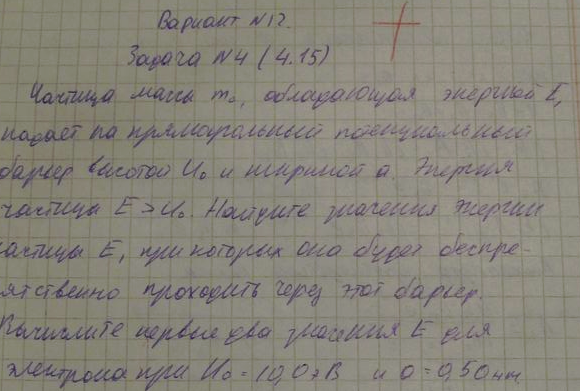 Вариант N12.
Задача N4 (4.15)
Частица массы m₀, обладающая энергией E,
падает на прямоугольный потенциальный
барьер высотой U₀ и шириной a. Энергия
частицы E > U₀. Найдите значения энергии
частицы E, при которых она будет беспре-
ятственно проходить через этот барьер.
Вычислите первые два значения E для
электрона при U₀ = 10,0 эВ и a = 0,50 нм